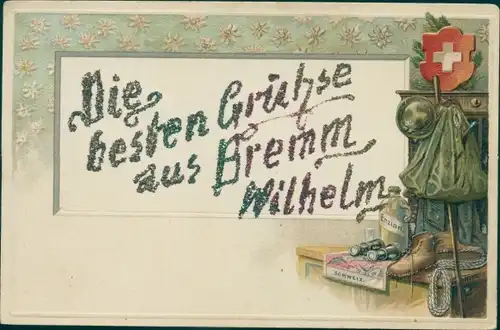 Die
besten Grühse
aus Bremm
Wilhelm
Enzian
SCHWEIZ